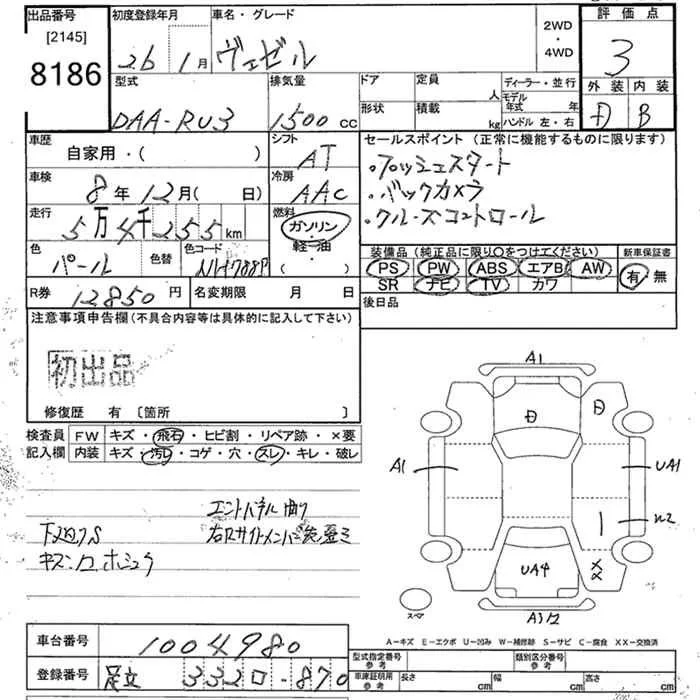 出品番号 初度登録年月 車名・グレード 2WD ・ 4WD 評価点
[2145]
8186 26 1月 ヴェゼル 3
型式 排気量 ドア 定員 人 ディーラー・並行 外装 内装
DAA-RU3 1500 CC 形状 積載 kg モデル年式 年 ハンドル 左・右 B
車歴 シフト セールスポイント (正常に機能するものに限ります)
自家用・( ) AT ・プッシュスタート
車検 8年 12月( 日) 冷房 AAC ・バックカメラ
走行 5万4千255km 燃料 ガソリン・軽油・( ) ・クルーズコントロール
色 パール 色替 色コード NH788P
装備品 (純正品に限り○をつけてください) 新車保証書
PS PW ABS エアB AW 有 無
SR ナビ TV カワ
R券 12850円 名変期限 月 日 後日品
注意事項申告欄(不具合内容等は具体的に記入して下さい)
初出品
修復歴 有 〔箇所 〕
検査員 FW キズ・飛石・ヒビ割・リペア跡・×要
記入欄 内装 キズ・汚レ・コゲ・穴・スレ・キレ・破レ
エンドパネル曲り
下廻りS
A1
A1
UA1
UA4
XX
スペア
A-キズ E-エクボ U-凹み W-補修跡 S-サビ C-腐食 XX-交換済
車台番号 1004980
登録番号 足立 332 ロ-870
型式指定番号 参考 類別区分番号 参考
車庫証明用 参考 長さ cm 幅 cm 高さ cm